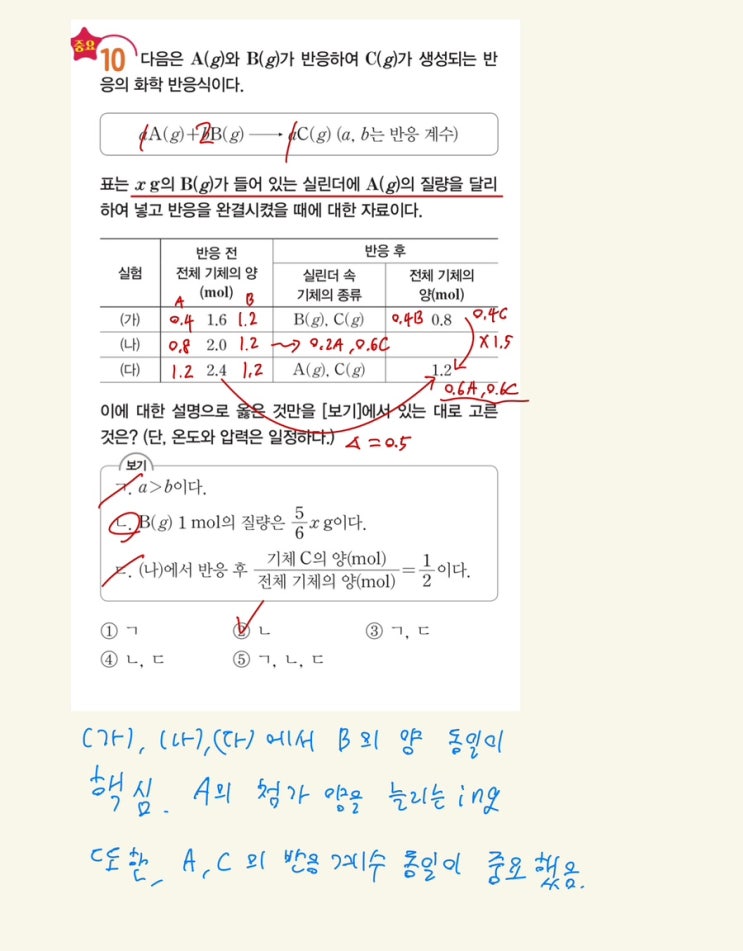 중요
10 다음은 A(g)와 B(g)가 반응하여 C(g)가 생성되는 반
응의 화학 반응식이다.
aA(g)+2bB(g) ⟶ aC(g) (a, b는 반응 계수)
표는 x g의 B(g)가 들어 있는 실린더에 A(g)의 질량을 달리
하여 넣고 반응을 완결시켰을 때에 대한 자료이다.
실험 반응 전 전체 기체의 양 (mol) 반응 후
실린더 속 기체의 종류 전체 기체의 양(mol)
A B
(가) 0.4 1.6 1.2 B(g), C(g) 0.4B 0.8 0.4C
(나) 0.8 2.0 1.2 → 0.2A, 0.6C ×1.5
(다) 1.2 2.4 1.2 A(g), C(g) 1.2
0.6A, 0.6C
이에 대한 설명으로 옳은 것만을 [보기]에서 있는 대로 고른
것은? (단, 온도와 압력은 일정하다.) =0.5
보기
ㄱ. a>b이다.
ㄴ. B(g) 1 mol의 질량은 5/6 x g이다.
ㄷ. (나)에서 반응 후 기체 C의 양(mol)/전체 기체의 양(mol) = 1/2 이다.
① ㄱ ② ㄴ ③ ㄱ, ㄷ
④ ㄴ, ㄷ ⑤ ㄱ, ㄴ, ㄷ
(가), (나), (다)에서 B의 양 동일이
핵심. A의 첨가 양을 늘리는 ing
또한, A, C의 반응계수 동일이 중요했음.